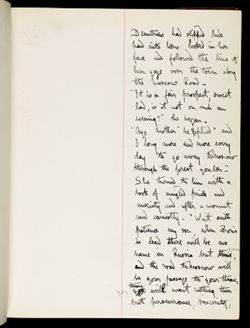 Demetrius had slipped his
hand into hers, looked in her
face and followed the line of
her gaze over the town along
the Moscow Road.
"It is a fair prospect sweet
lad, is it not on such an
evening?" she began.
"Aye mother" he replied "and
I long more and more every
day to go away tomorrow
through the forest yonder".
She turned to him with a
look of mingled pride and
anxiety and after a moment
said earnestly. "Wait with
patience my son when Boris
is dead there will be no
name in Russia but thine
and the road to Moscow will
be your passage to your throne,
will want nothing then
but perseverance, sincerity,